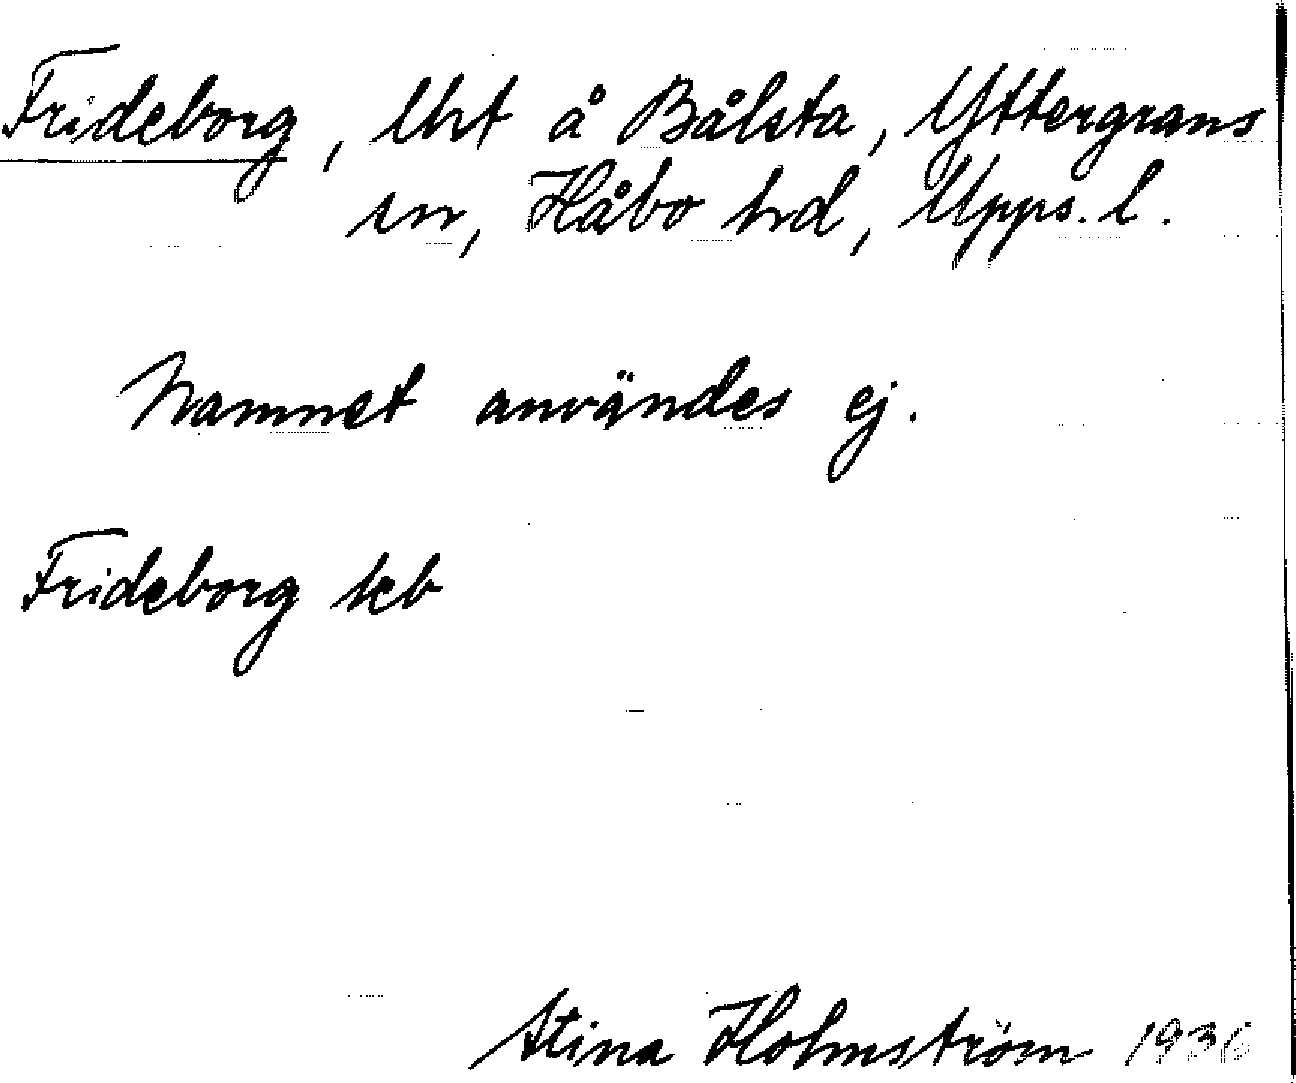 Frideborg, lht å Bålsta, Yttergrans
sn, Håbo hd, Upps. l.
Namnet användes ej.
Frideborg kb
Stina Holmström 1936